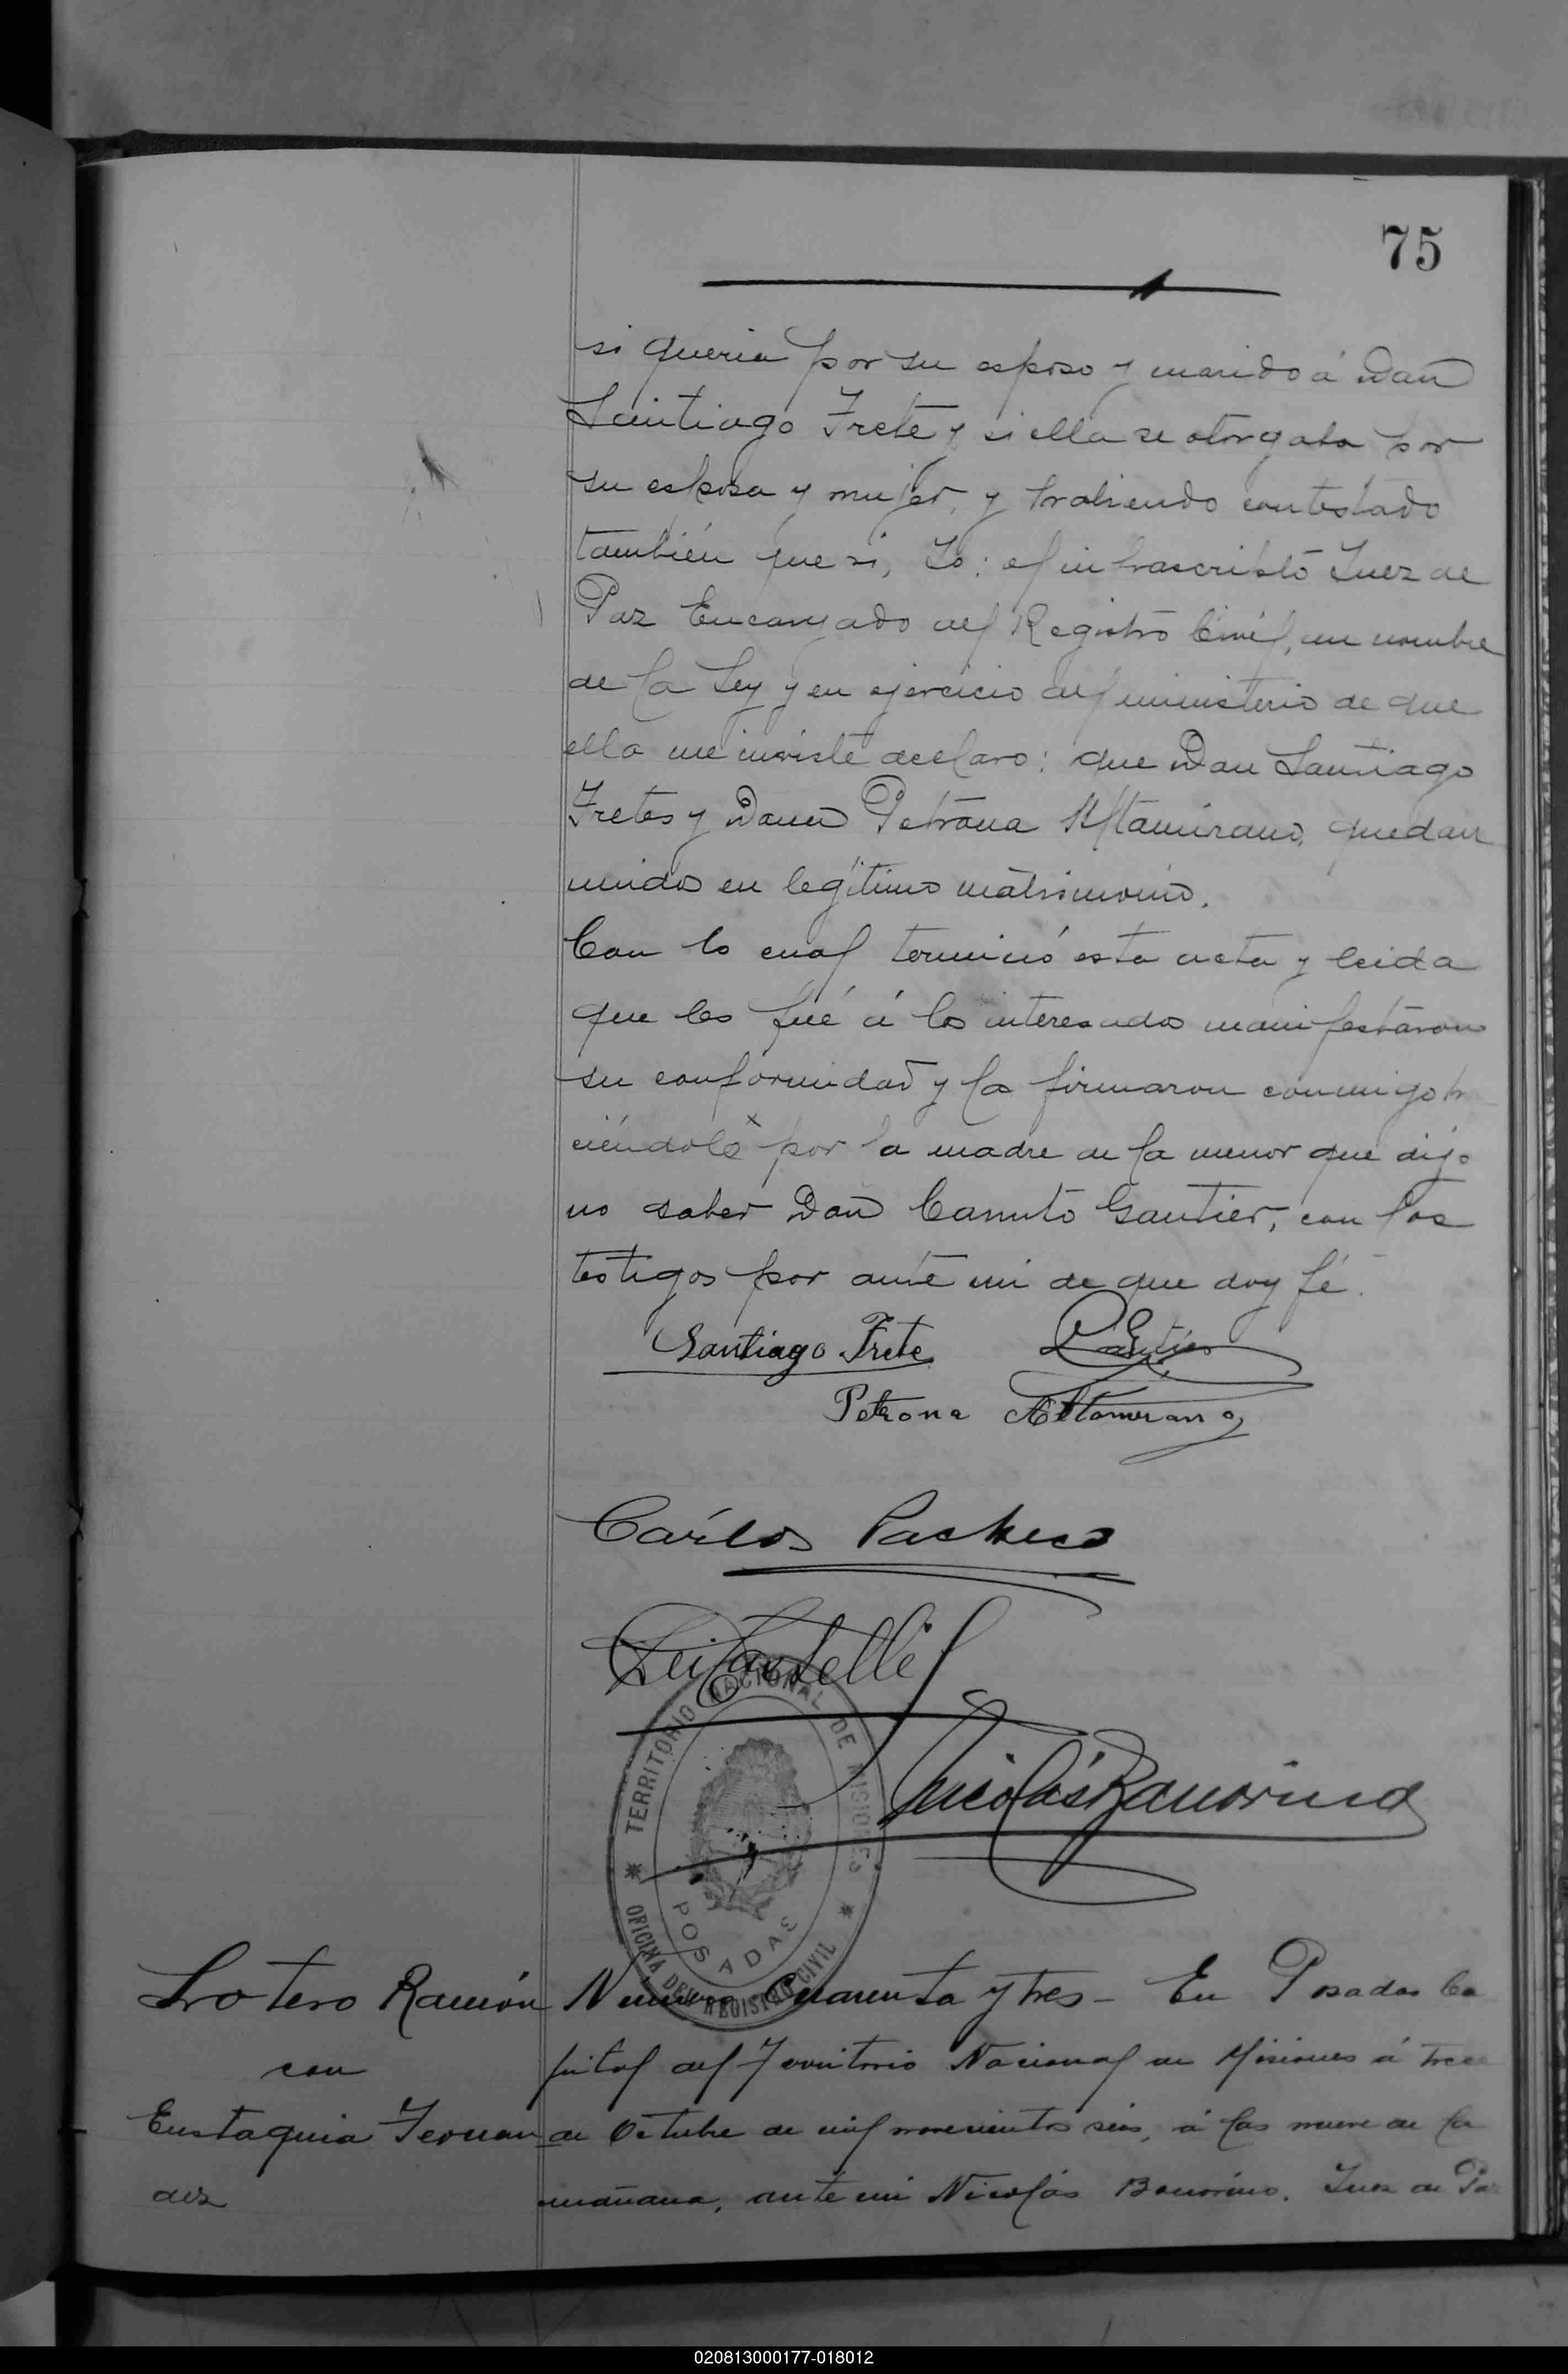 75
si queria por su esposo y marido á Don
Santiago Frete y si ella se otorgaba por
su esposa y mujer, y habiendo contestado
también que si, Yo: el infrascripto Juez de
Paz Encargado del Registro Civil, en nombre
de la Ley y en ejercicio del ministerio de que
ella me inviste declaro: que Don Santiago
Fretes y Doña Petrona Altamirano, quedan
unidos en legítimo matrimonio.
Con lo cual terminó esta acta y leida
que les fué á los interesados manifestaron
su conformidad y la firmaron conmigo ha
ciéndolo por la madre de la menor que dijo
no saber Don Canuto Gautier, con los
testigos por ante mi de que doy fé.
Santiago Frete Gautier
Petrona Altamirano
Cárlos Pacheco
Nicolás Bonorino
TERRITORIO NACIONAL DE MISIONES
POSADAS
OFICINA DEL REGISTRO CIVIL
Sotero Ramón
con
Eustaquia Fernan
dez
Número Cuarenta y tres - En Posadas Ca
pital del Territorio Nacional de Misiones á trece
de Octubre de mil novecientos seis, á las nueve de la
mañana, ante mi Nicolás Bonorino, Juez de Paz
020813000177-018012